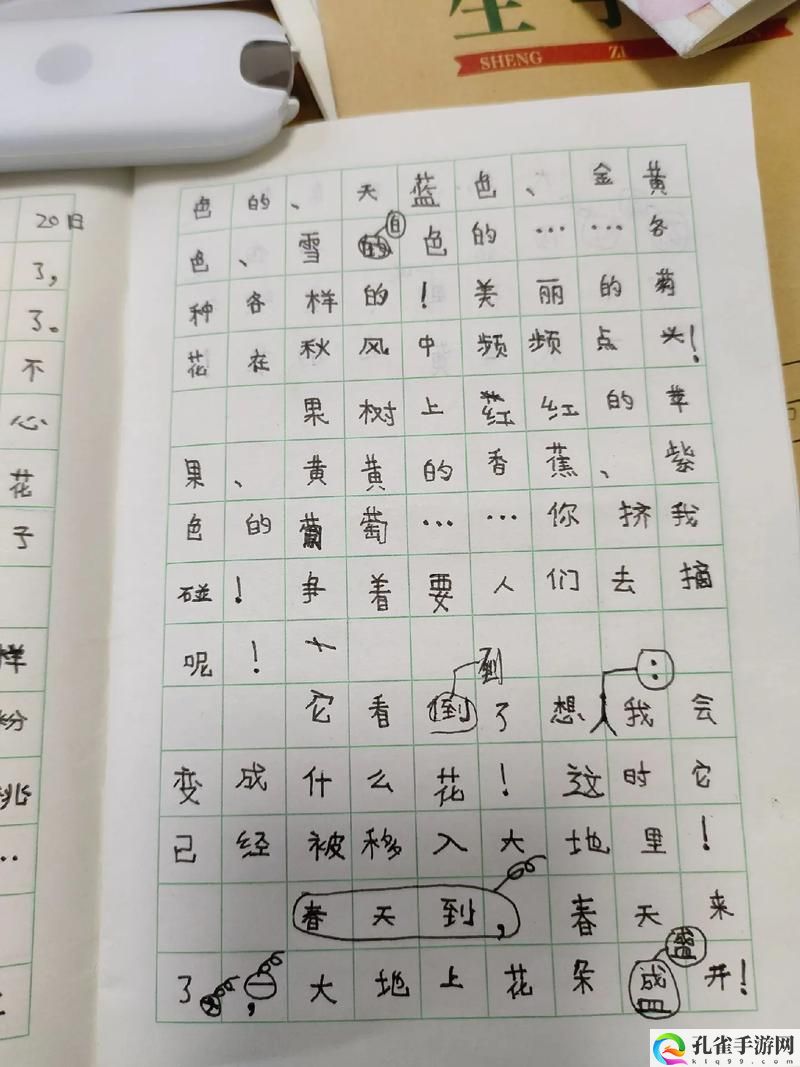 生字
SHENG ZI
20日
了，
了。
不
心
花
子
样
粉
桃
…
色的、天蓝色、金黄
色、雪白色的……各
种各样的！美丽的菊
花在秋风中频频点头！
果树上红红的苹
果、黄黄的香蕉、紫
色的葡萄……你挤我
碰！争着要人们去摘
呢！
它看到了想：我会
变成什么花！这时它
已经被移入大地里！
春天到，春天来
了，大地上花朵盛开！
孔雀手游网
ktq99.com